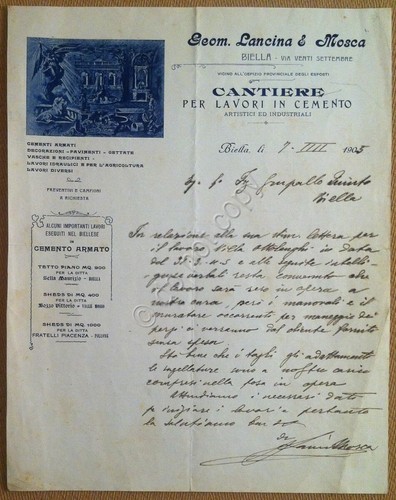 Geom. Lancina & Mosca
BIELLA - VIA VENTI SETTEMBRE
VICINO ALL'OSPIZIO PROVINCIALE DEGLI ESPOSTI
CANTIERE
PER LAVORI IN CEMENTO
ARTISTICI ED INDUSTRIALI
CEMENTI ARMATI
DECORAZIONI - PAVIMENTI - GETTATE
VASCHE E RECIPIENTI
LAVORI IDRAULICI E PER L'AGRICOLTURA
LAVORI DIVERSI
PREVENTIVI E CAMPIONI
A RICHIESTA
ALCUNI IMPORTANTI LAVORI
ESEGUITI NEL BIELLESE
IN
CEMENTO ARMATO
TETTO PIANO MQ. 900
PER LA DITTA
Sella Maurizio - BIELLA
SHEDS DI MQ. 400
PER LA DITTA
SHEDS DI MQ. 1000
PER LA DITTA
FRATELLI PIACENZA - POLLONE
Biella, li 7 1905
Biella
In relazione alla sua lettera per
il lavoro Villa Ottolenghi in data
del e alle
verbali resta convenuto che
il lavoro sarà in opera a
nostra cura, però i manovali e il
muratore occorrenti per maneggio dei
pezzi ci verranno dal cliente forniti
senza spesa
Sta bene che i tagli gli adattamenti
le sugellature sono a nostro carico
compresi nella posa in opera
Attendiamo i necessari dati
per iniziare i lavori e pertanto
la salutiamo
Mosca